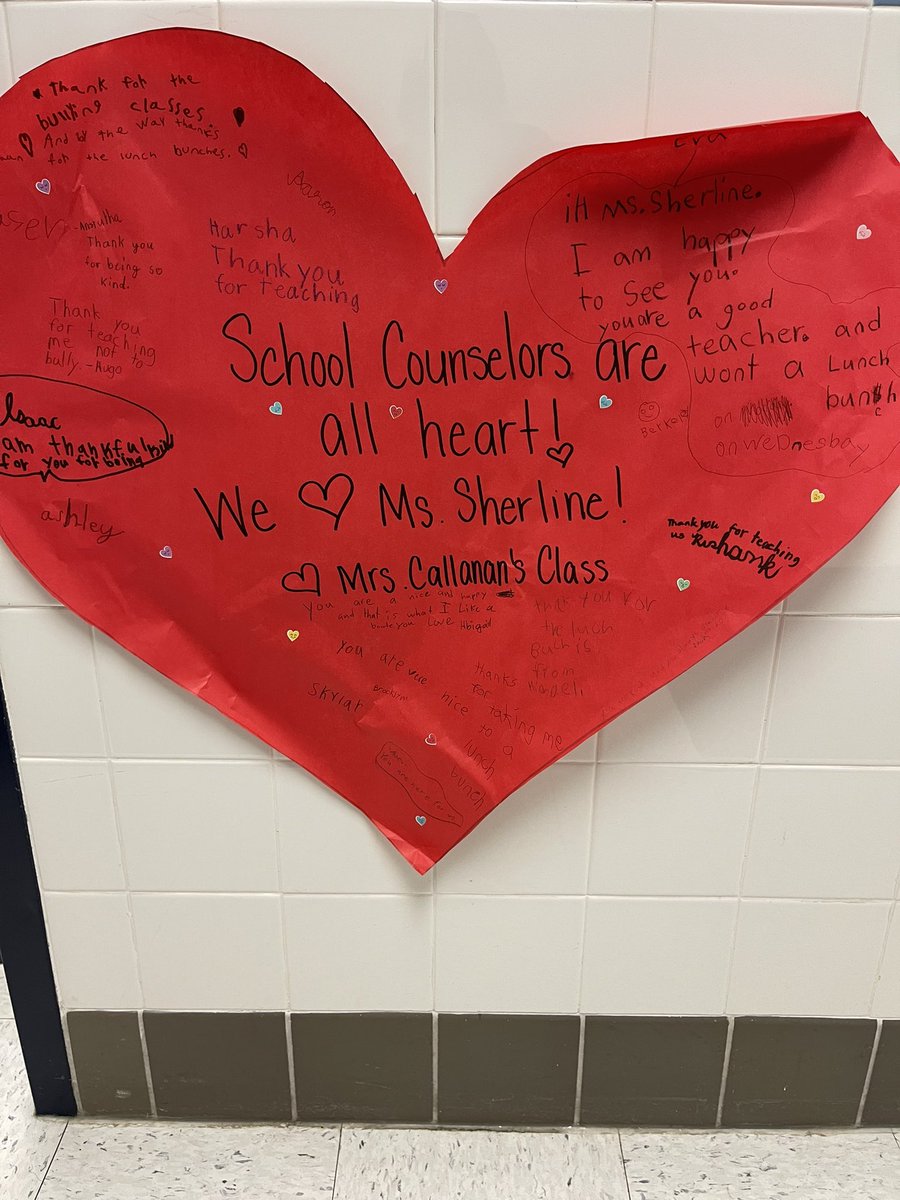 Thank for the
bulling classes
And by the way thanks
for the lunch bunches.
Aaron
Thank you
for being so
kind.
Harsha
Thank you
for teaching
Thank you
for teaching
me not to
bully. - Hugo
Isaac
am thankful
for you for being
ashley
Eva
iH Ms. Sherline.
I am happy
to see you.
you are a good
teacher. and
wont a Lunch
bunch
on
on WeDnesbay
School Counselors are
all heart!
We Ms. Sherline!
Mrs. Callanan's Class
Thank you for teaching
us Rushank
You are a nice and happy
and that is what I Like a
boute you Love Abigail
that you For
the lunch
Buch is
from
You are vere nice to a
lunch
bunch
thanks
for taking me
Skylar